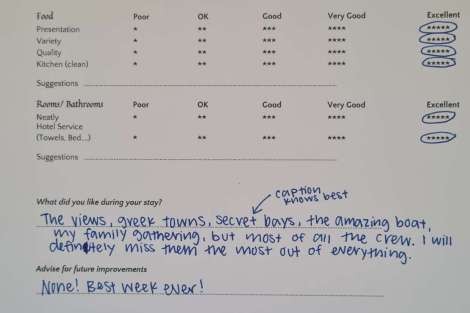 Food Poor OK Good Very Good Excellent
Presentation * ** *** **** *****
Variety * ** *** **** *****
Quality * ** *** **** *****
Kitchen (clean) * ** *** **** *****
Suggestions
Rooms/ Bathrooms Poor OK Good Very Good Excellent
Neatly
Hotel Service
(Towels, Bed...) * ** *** **** *****
Suggestions
caption
knows best
What did you like during your stay?
The views, greek towns, secret bays, the amazing boat,
my family gathering, but most of all the crew. I will
definetely miss them the most out of everything.
Advise for future improvements
None! Best week ever!